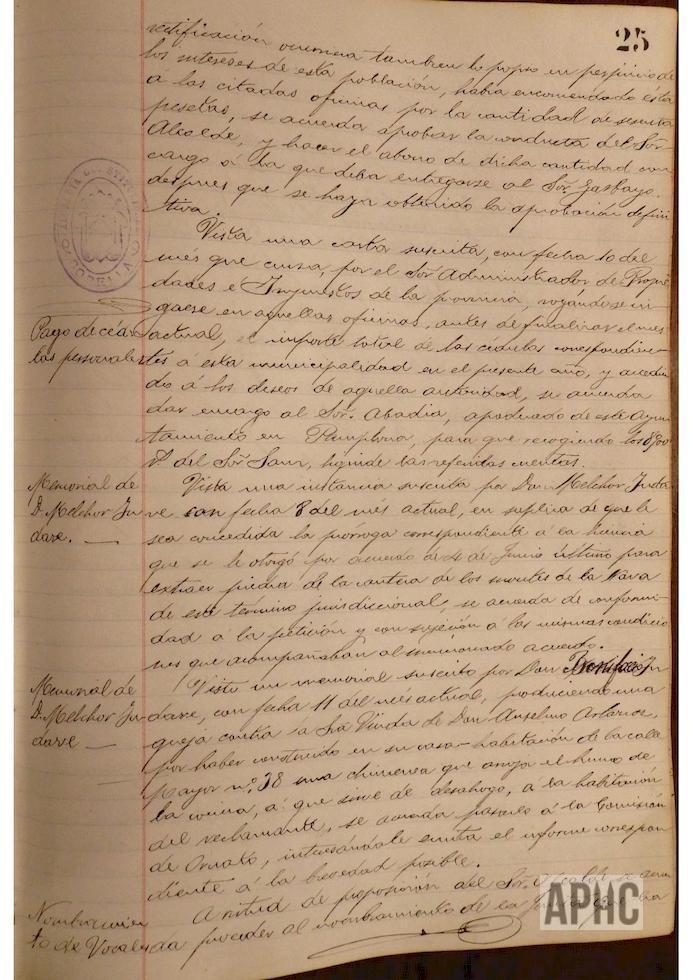 25
rectificación ocurriera tambien lo propio en perjuicio de
los intereses de esta población, había encomendado ésta
a las citadas oficinas por la cantidad de sesenta
pesetas, se acuerda aprobar la conducta del Sor.
Alcalde, y hacer el abono de dicha cantidad con
cargo á la que deba entregarse al Sor.
despues que se haya obtenido la aprobación defini
tiva.
Vista una carta suscrita, con fecha 10 del
més que cursa, por el Sor. Administrador de Propie
dades é Impuestos de la provincia, rogando se in
grese en aquellas oficinas, antes de finalizar el mes
Pago de cédu
las personales
actual, el importe total de las cédulas correspondien-
tes á esta municipalidad en el presente año, y acce
dido á los deseos de aquella autoridad, se acuerda
dar encargo al Sor. Abadia, apoderado de este Ayun
tamiento en Pamplona, para que recogiendo los
del Sor. Sanz, liquide las referidas cuentas.
Memorial de
D. Melchor Ju
darve.
Vista una instancia suscrita por Don Melchor Juda
rve con fecha 8 del més actual, en suplica de que le
sea concedida la prórroga correspondiente á la licencia
que se le otorgó por acuerdo de 4 de Junio último para
extraer piedra de la cantera de los montes de la Nava
de este termino jurisdiccional, se acuerda de conformi-
dad á la petición y con sujeción á las mismas condicio
nes que acompañaban al mencionado acuerdo.
Memorial de
D. Melchor Ju-
darve
Visto un memorial suscrito por Don Bonifacio Ju
darve, con fecha 11 del més actual, produciendo una
queja contra la Sra Viuda de Don Anselmo
por haber construido en su casa-habitación de la calle
Mayor nº. 38 una chimenea que arroja el humo de
la cocina, á que sirve de desahogo, á la habitación
del reclamante, se acuerda pasarlo á la Comisión
de Ornato, interesándole emita el informe correspon
diente á la brevedad posible.
Nombramien
to de Vocales
A virtud de proposición del Sor. Alcalde se acuer
da proceder al nombramiento de la
APHC